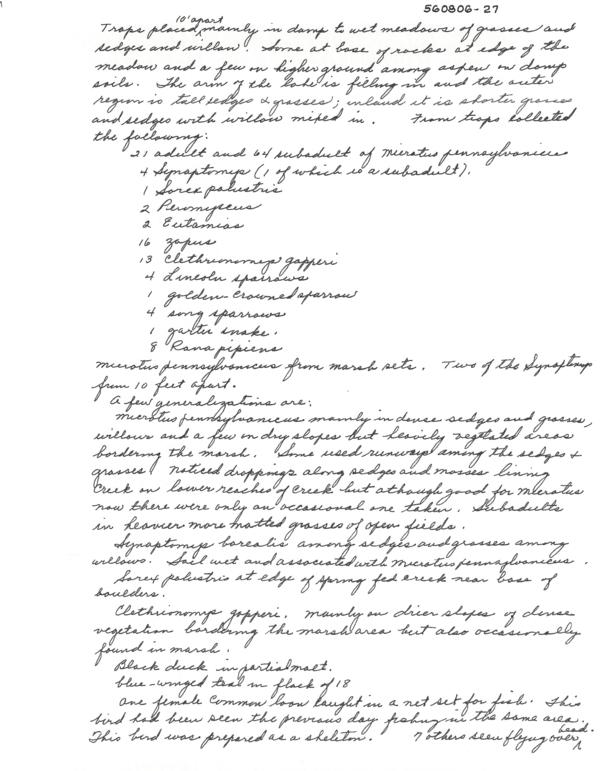 560806-27
Traps placed 10' apart mainly in damp to wet meadows of grasses and
sedges and willow. Some at base of rocks at edge of the
meadow and a few on higher ground among aspen on damp
soils. The arm of the lake is filling in and the outer
region is tall sedges & grasses; inland it is shorter grasses
and sedges with willow mixed in. From traps collected
the following:
21 adult and 64 subadult of Microtus pennsylvanicus
4 Synaptomys (1 of which is a subadult).
1 Sorex palustris
2 Peromyscus
2 Eutamias
16 Zapus
13 Clethrionomys gapperi
4 Lincoln sparrows
1 golden-crowned sparrow
4 song sparrows
1 garter snake.
8 Rana pipiens
Microtus pennsylvanicus from marsh sets. Two of the Synaptomys
from 10 feet apart.
A few generalizations are:
Microtus pennsylvanicus mainly in dense sedges and grasses,
willows and a few on dry slopes but heavily vegetated areas
bordering the marsh. Some used runways among the sedges &
grasses. Noticed droppings along sedges and mosses lining
creek on lower reaches of creek but although good for Microtus
now there were only an occasional one taken. Subadults
in heavier more matted grasses of open fields.
Synaptomys borealis among sedges and grasses among
willows. Soil wet and associated with Microtus pennsylvanicus.
Sorex palustris at edge of spring fed creek near base of
boulders.
Clethrionomys gapperi. mainly on drier slopes of dense
vegetation bordering the marsh area but also occasionally
found in marsh.
Black duck in partial molt.
blue-winged teal in flock of 18
One female Common loon caught in a net set for fish. This
bird had been seen the previous day fishing in the same area.
This bird was prepared as a skeleton. 7 others seen flying over head.